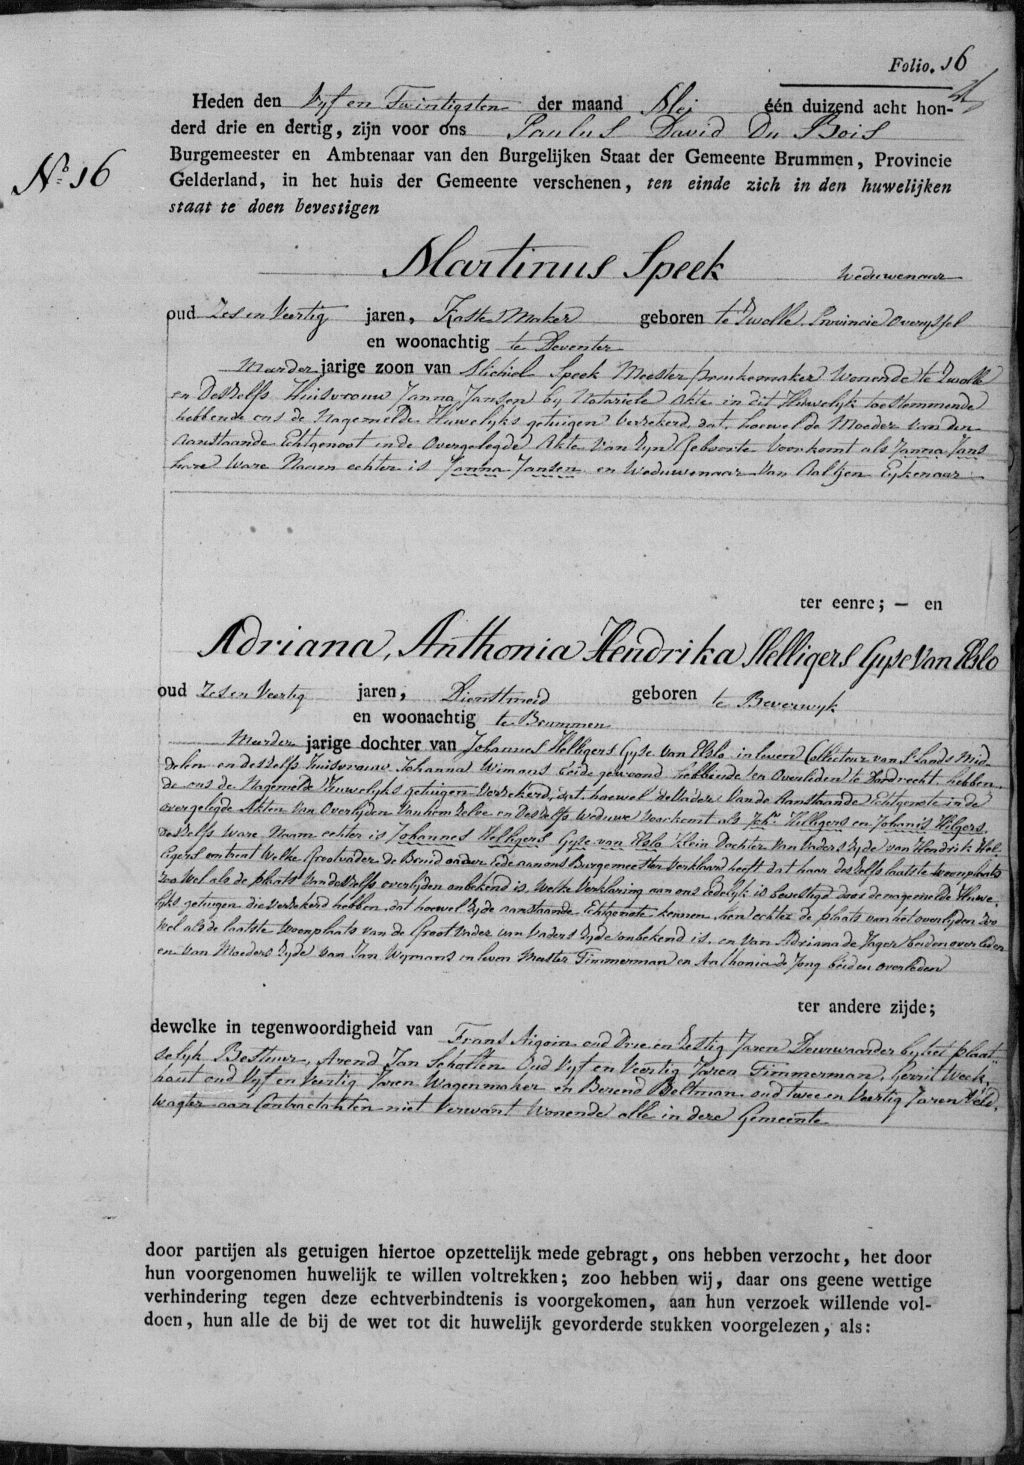 Folio. 16
Heden den Vyf en Twintigsten der maand Mej één duizend acht hon-
derd drie en dertig, zijn voor ons Paulus David Du Bois
Burgemeester en Ambtenaar van den Burgelijken Staat der Gemeente Brummen, Provincie
No. 16
Gelderland, in het huis der Gemeente verschenen, ten einde zich in den huwelijken
staat te doen bevestigen
Martinus Speek Weduwenaar
oud Zes en Veertig jaren, Kaste Maker geboren te Zwolle Provincie Overyssel
en woonachtig te Deventer
Meerder jarige zoon van Michiel Speek Meester Wonende te Zwolle
en Deszelfs Huisvrouw Janna Jansen by Notariele Akte in dit Huwelyk toestemmende
hebbende ons de Nagemelde Huwelyks getuigen verzekerd, dat, hoewel de Moeder van den
aanstaande Echtgenoot in de Overgelegde Akte van zyn Geboorte voorkomt als Janna Jans
hare Ware Naam echter is Janna Jansen en Weduwenaar van Aaltjen Eykenaar
ter eenre; — en
Adriana, Anthonia Hendrika Helligers Gyse Van Elslo
oud Zes en Veertig jaren, Dienstmeid geboren te Beverwyk
en woonachtig te Brummen
Meerder jarige dochter van Johannes Helligers Gyse van Elslo in leven Collecteur van S Lands Mid
delen en deszelfs Huisvrouw Johanna Wimans beide gewoond hebbende en Overleden te Dordrecht hebben
de ons de Nagemelde Huwelyks getuigen Verzekerd, dat, hoewel de Vader van de Aanstaande Echtgenote in de
overgelegde Akten van Overlyden van hem zelve en Deszelfs weduwe voorkomt als Johs. Helligers en Johanis Hilgers
Deszelfs ware Naam echter is Johannes Helligers Gyse van Elslo Klein Dochter van Vaders Zyde van Hendrik Hel-
ligers omtrent Welke Grootvader de Bruid onder Ede aan ons Burgemeester verklaard heeft dat haar deszelfs laatste woonplaats
zoo Wel als de plaats van deszelfs overlyden onbekend is. Welke Verklaring aan ons Eedelyk is bevestigd door de nagemelde Huwe-
lyks getuigen die verzekerd hebben dat hoewel zy de aanstaande Echtgenote kennen, hen echter de plaats van het overlyden zoo
Wel als de laatste Woonplaats van de Groot Vader van Vaders Zyde onbekend is. en van Adriana de Jager beiden overleden
en van Moeders Zyde van Jan Wymans in leven Meester Timmerman en Anthonia de Jong beiden overleden
ter andere zijde;
dewelke in tegenwoordigheid van Frans Aigoin oud Drie en Zestig Jaren Deurwaarder by het plaat-
selyk Bestuur, Arend Jan Scholten Oud Vyf en Veertig Jaren Timmerman, Gerrit Weck-
hout oud Vyf en Veertig Jaren Wagenmaker en Berend Beltman oud twee en Veertig Jaren Veld,
wagter aan Contractanten niet Verwant Wonende alle in deze Gemeente
door partijen als getuigen hiertoe opzettelijk mede gebragt, ons hebben verzocht, het door
hun voorgenomen huwelijk te willen voltrekken; zoo hebben wij, daar ons geene wettige
verhindering tegen deze echtverbindtenis is voorgekomen, aan hun verzoek willende vol-
doen, hun alle de bij de wet tot dit huwelijk gevorderde stukken voorgelezen, als: